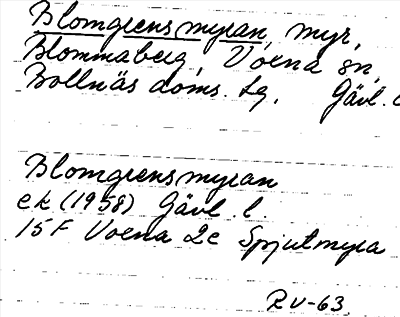 Blomgrensmyran, myr,
Blommaberg, Voxna sn,
Bollnäs doms. tg, Gävl. l
Blomgrensmyran
ek (1958) Gävl. l.
15 F Voxna 2c Spjutmyra
RV-63